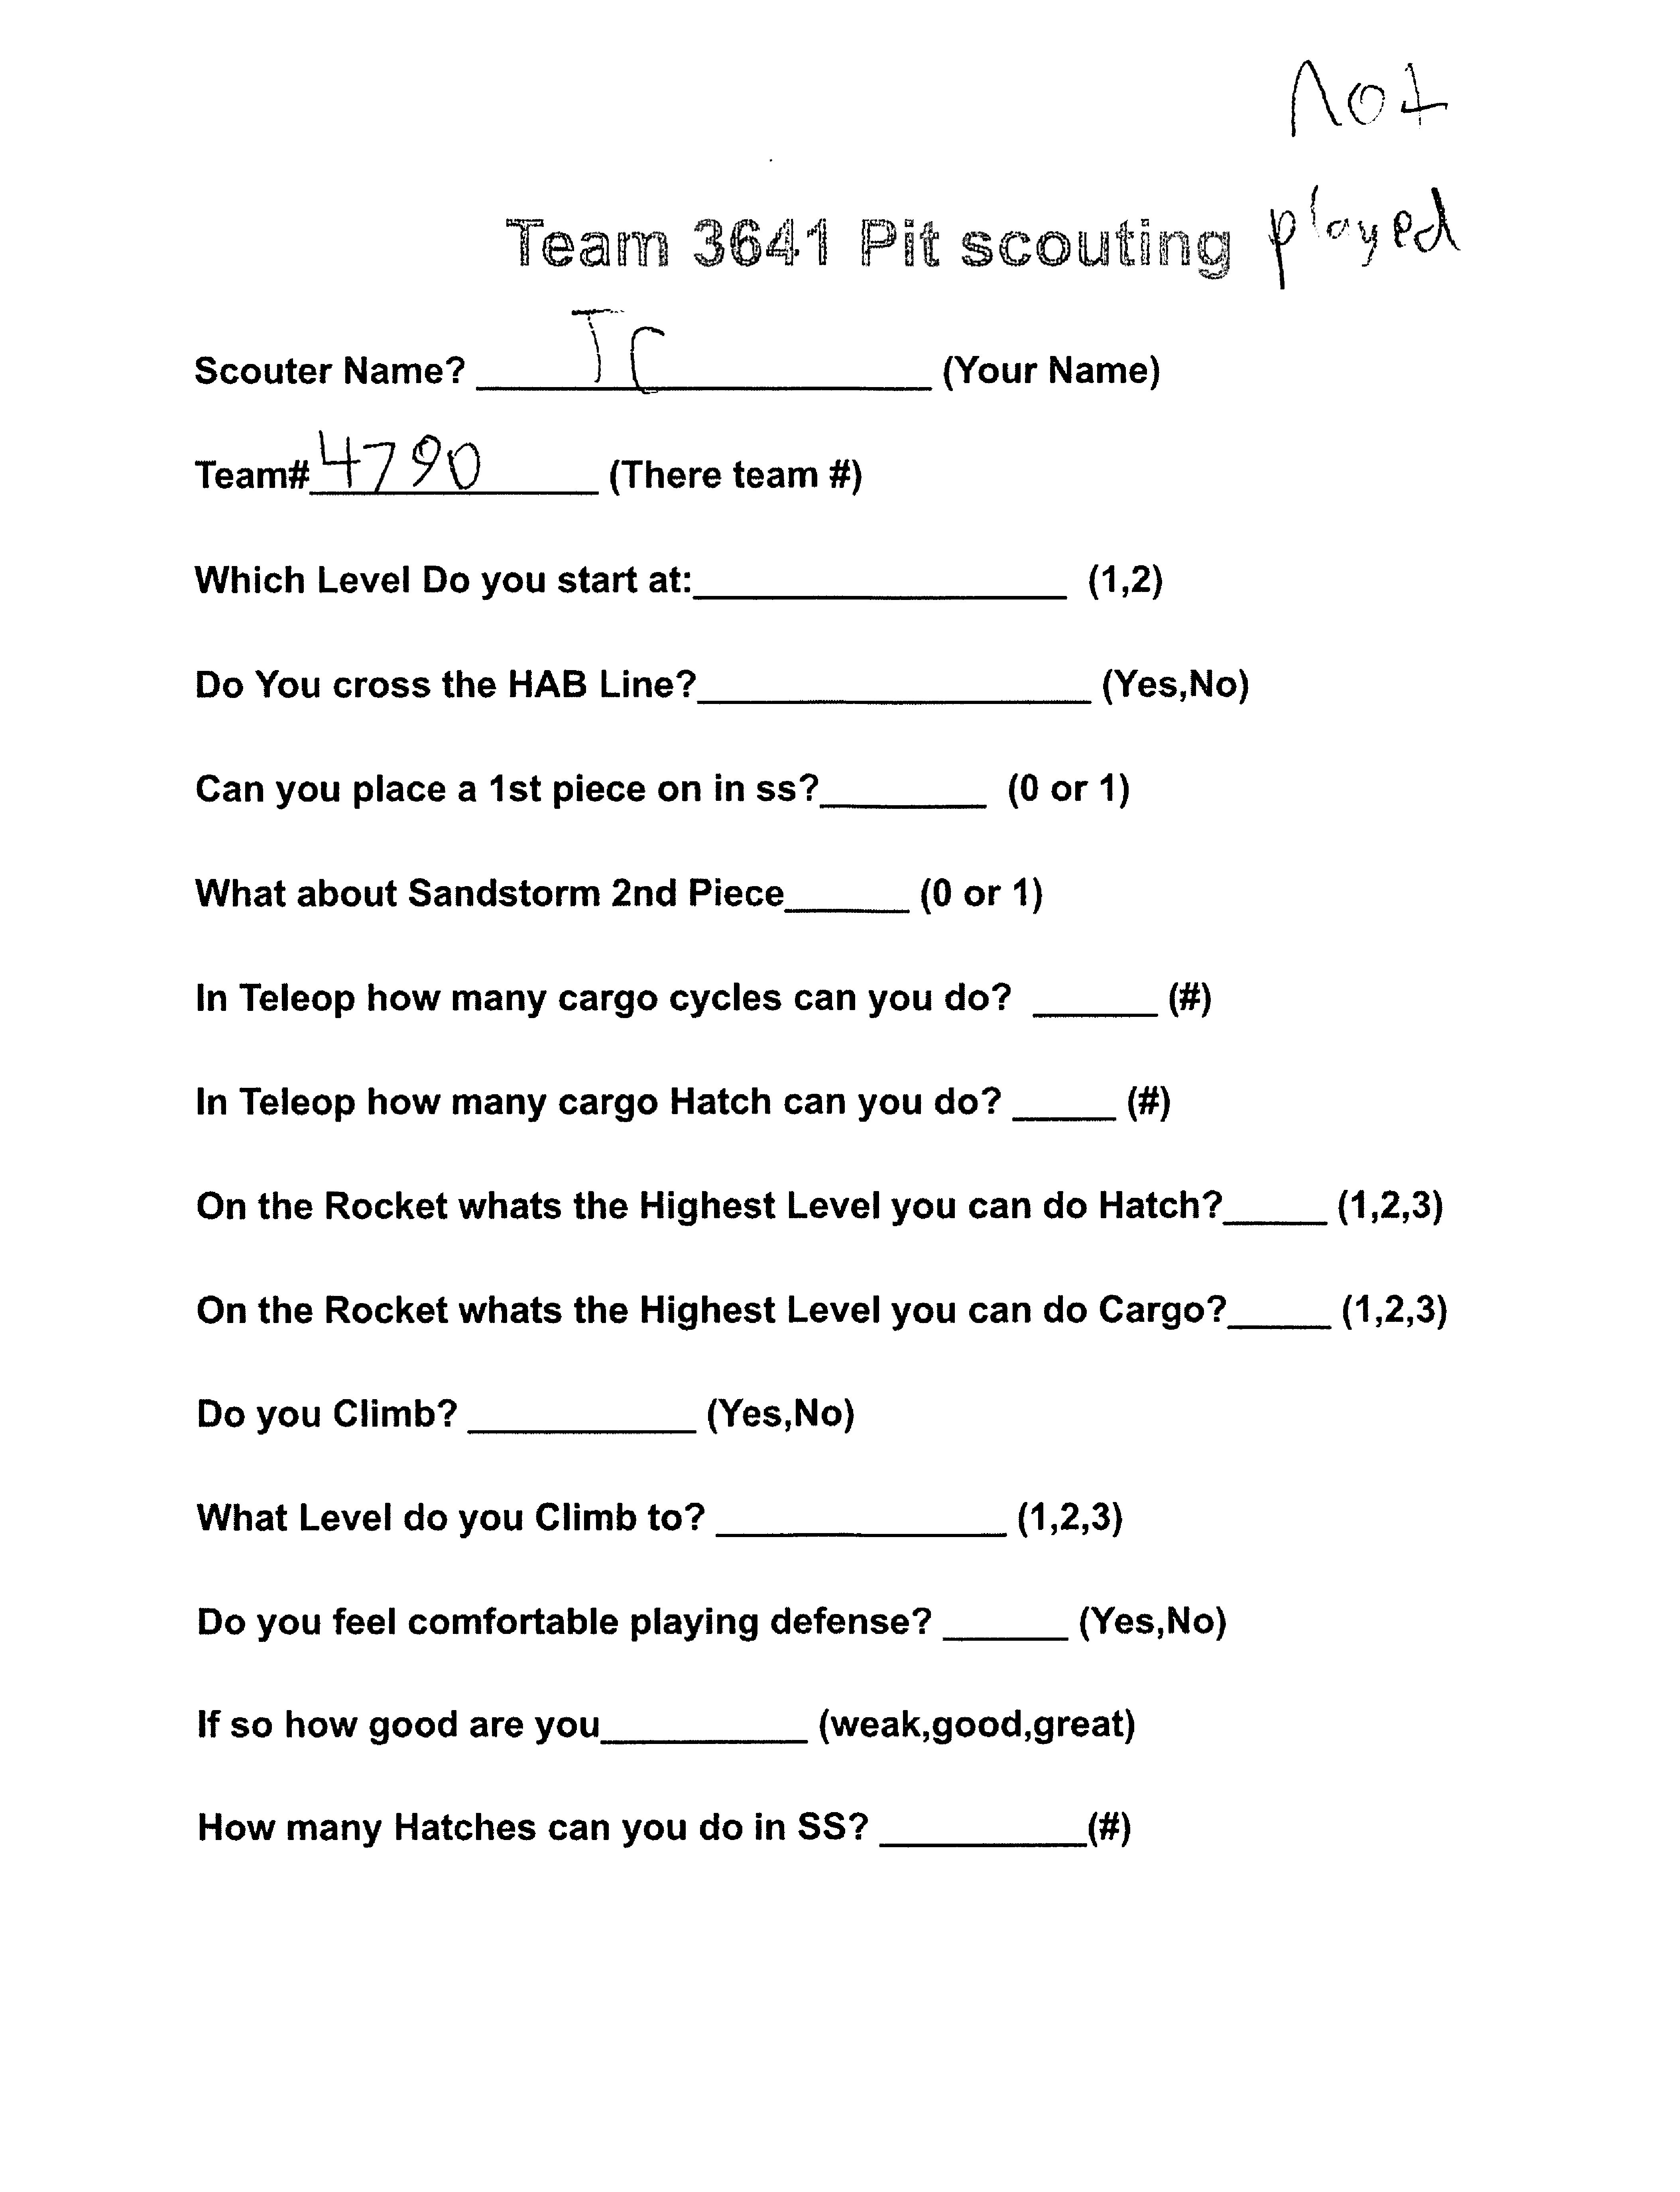 not
Team 3641 Pit scouting played
Scouter Name? TC (Your Name)
Team# 4790 (There team #)
Which Level Do you start at:__________________ (1,2)
Do You cross the HAB Line?___________________ (Yes,No)
Can you place a 1st piece on in ss?________ (0 or 1)
What about Sandstorm 2nd Piece______ (0 or 1)
In Teleop how many cargo cycles can you do? ______ (#)
In Teleop how many cargo Hatch can you do? _____ (#)
On the Rocket whats the Highest Level you can do Hatch?_____ (1,2,3)
On the Rocket whats the Highest Level you can do Cargo?_____ (1,2,3)
Do you Climb? ___________ (Yes,No)
What Level do you Climb to? ______________ (1,2,3)
Do you feel comfortable playing defense? ______ (Yes,No)
If so how good are you__________ (weak,good,great)
How many Hatches can you do in SS? __________(#)